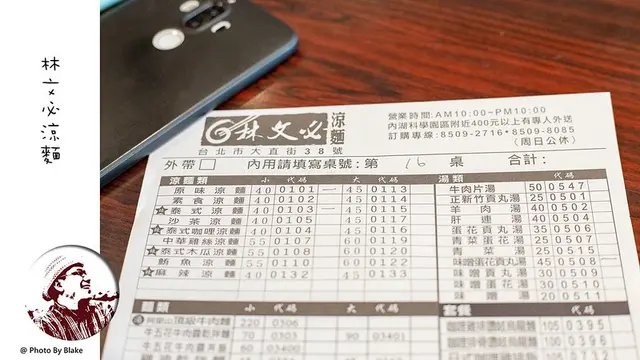 林文必涼麵
林文必涼麵
台北市大直街38號
營業時間:AM10:00~PM10:00
內湖科學園區附近400元以上有專人外送
訂購專線:8509-2716•8509-8085
(周日公休)
外帶 內用請填寫桌號:第 16 桌 合計:
涼麵類 小 代碼 大 代碼
原味涼麵 40 0101 一 45 0113
素食涼麵 40 0102 45 0114
☆泰式涼麵 40 0103 一 45 0115
沙茶涼麵 40 0105 45 0117
☆泰式咖哩涼麵 40 0104 45 0116
中華雞絲涼麵 55 0107 60 0119
☆泰式木瓜涼麵 55 0108 60 0120
鮪魚涼麵 55 0110 60 0122
☆麻辣涼麵 40 0132 45 0133
湯類
牛肉片湯 50 0547
正新竹貢丸湯 25 0501
羊肉湯 40 0502
肝連湯 40 0504
蛋花貢丸湯 35 0506
青菜蛋花湯 30 0507
青菜湯 25 0515
味噌蛋花貢丸湯 45 0508 一
味噌貢丸湯 30 0512
味噌蛋花湯 30 0513
味噌湯 20 0514
麵類 小 代碼 大 代碼
頂級牛肉麵 220 0306
70 0303 90 03401
60 03400
套餐 代碼
105 0395
100 0396
@ Photo By Blake